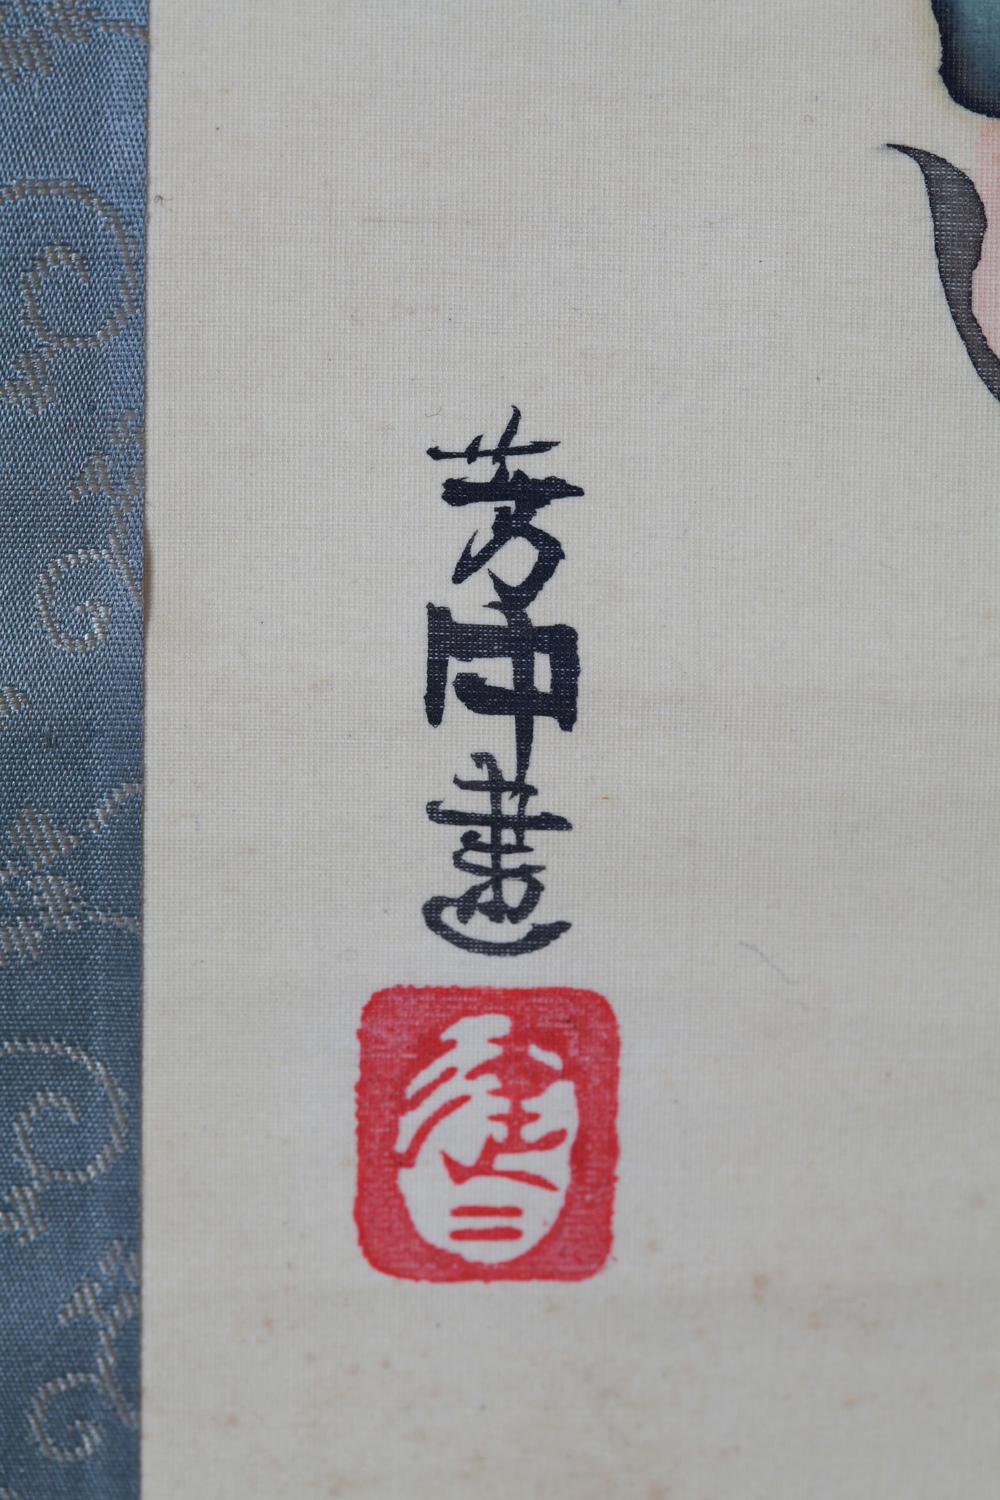 芳中畫